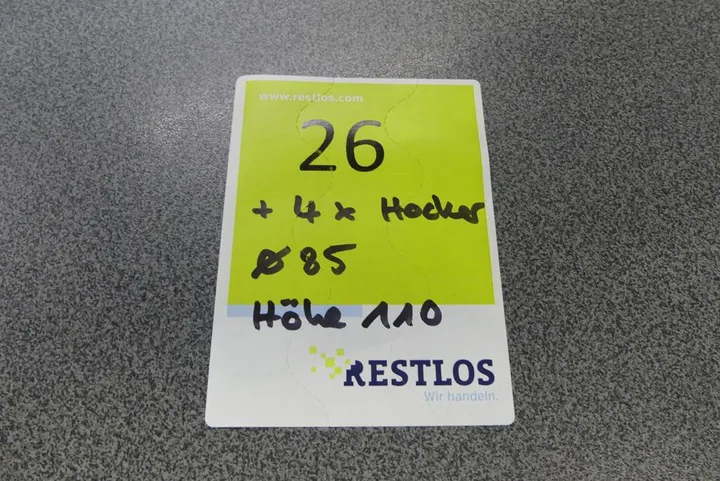 www.restlos.com
26
+ 4 x Hocker
Ø 85
Höhe 110
RESTLOS
Wir handeln.